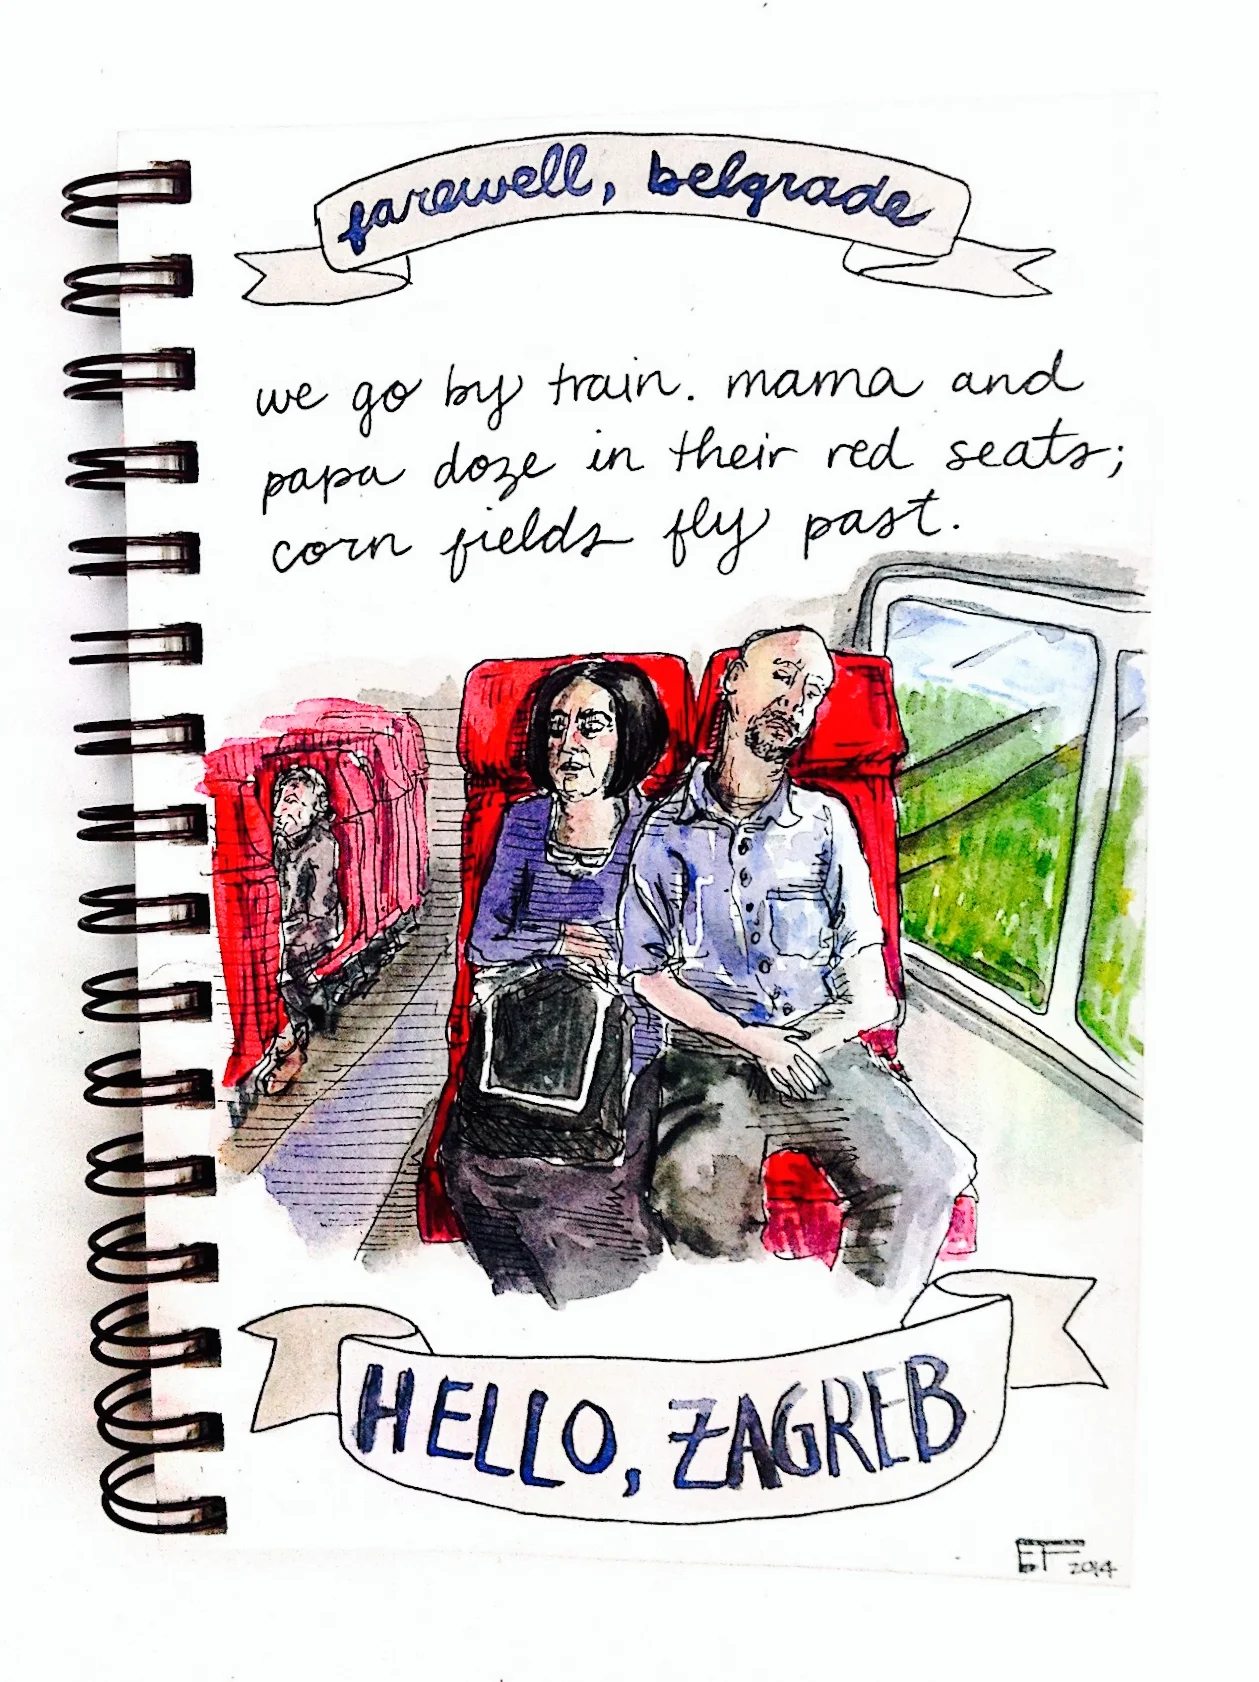 farewell, belgrade
we go by train. mama and
papa doze in their red seats;
corn fields fly past.
HELLO, ZAGREB
EF 2014